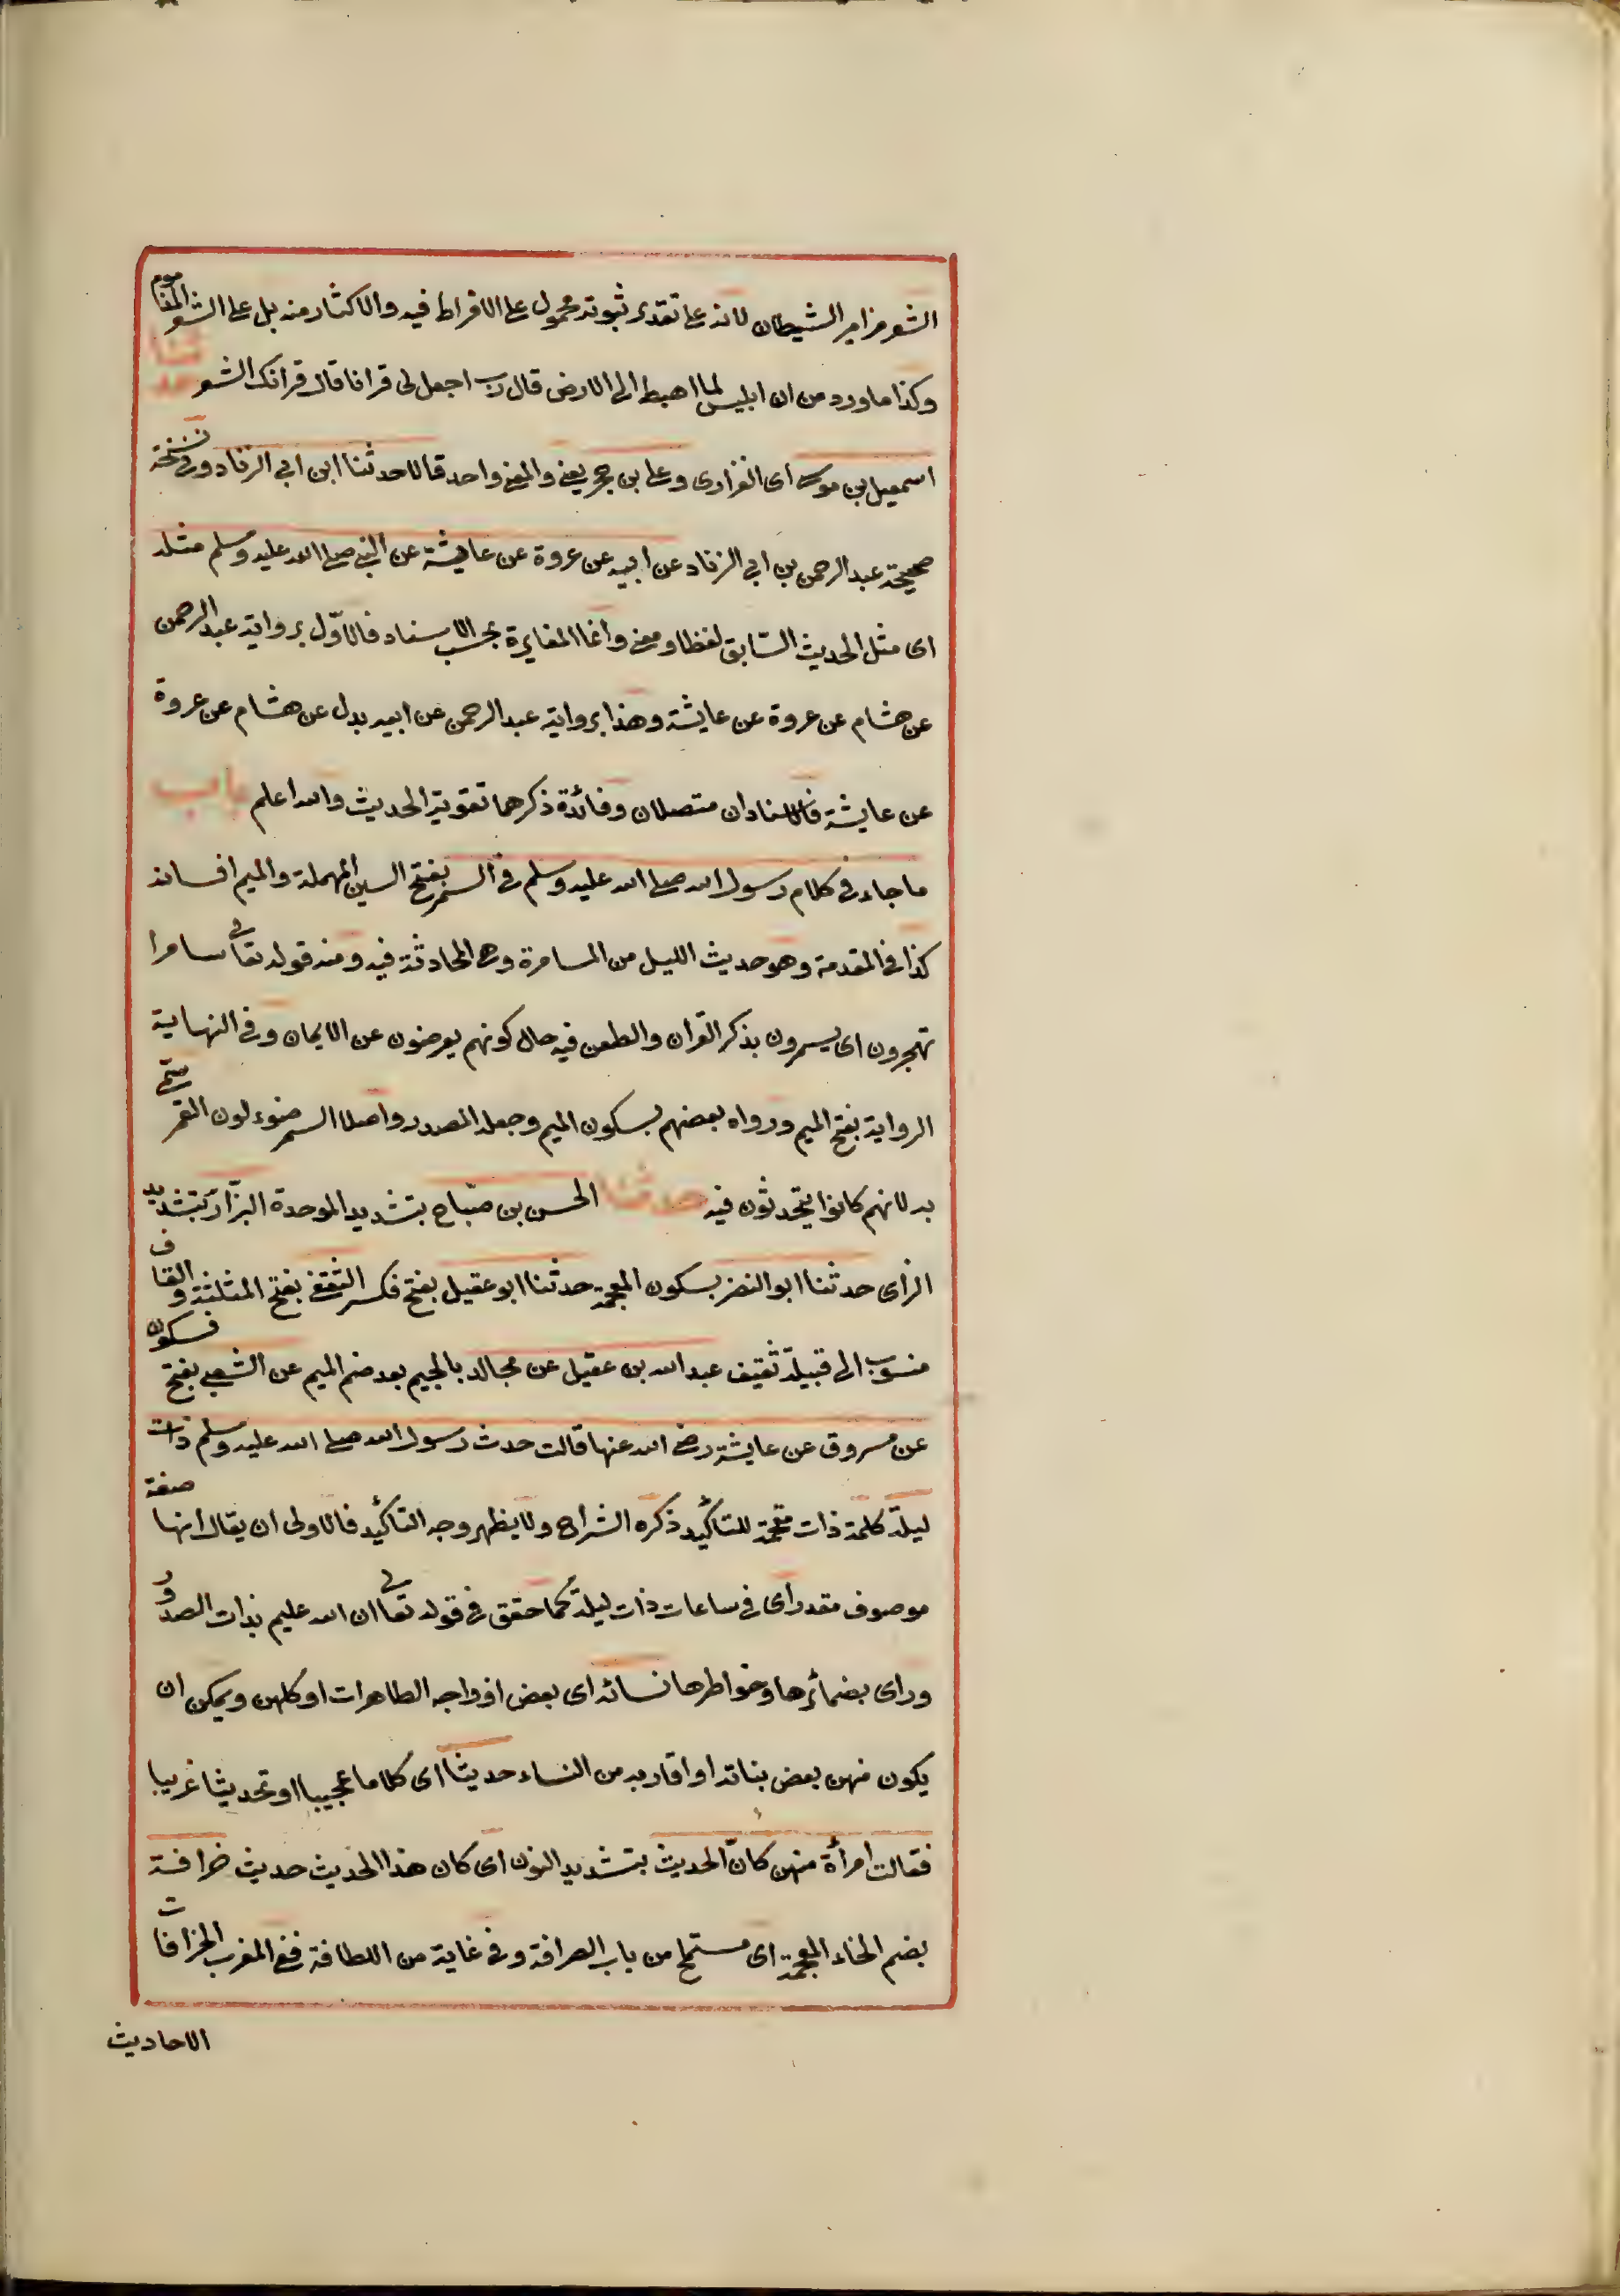 الشعر مزامير الشيطان لانه على تقدير ثبوته محمول على الافراط فيه والاكثار منه بل على الشعر المذموم
وكذا ما ورد من ان ابليس لما اهبط الى الارض قال رب اجعل لى قرانا قال قرانك الشعر حدثنا
اسمعيل بن موسى اى الفزارى وعلى بن حجر يعنى والمعنى واحد قالا حدثنا ابن ابى الزناد وفى نسخة
صحيحة عبد الرحمن بن ابى الزناد عن ابيه عن عروة عن عايشة عن النبى صلى الله عليه وسلم مثله
اى مثل الحديث السّابق لفظا ومعنى وانما المغايرة بحسب الاسناد فالاوّل برواية عبد الرحمن
عن هشام عن عروة عن عايشة وهذا برواية عبد الرحمن عن ابيه بدل عن هشام عن عروة
عن عايشة فالاسنادان متصلان وفائدة ذكرهما تقوية الحديث والله اعلم باب
ما جاء فى كلام رسول الله صلى الله عليه وسلم فى السمر بفتح السين المهملة والميم افسانه
كذا فى المقدمة وهو حديث الليل من المسامرة وهى المحادثة فيه ومنه قوله تعالى سامرا
تهجرون اى يسمرون بذكر القران والطعن فيه حال كونهم يعرضون عن الايمان وفى النهاية
الرواية بفتح الميم ورواه بعضهم بسكون الميم وجعله المصدر واصل السمر ضوء لون القمر سمى
به لانهم كانوا يتحدثون فيه حدثنا الحسن بن صبّاح بتشديد الموحدة البزّار بتشديد
الزاى حدثنا ابو النضر بسكون المعجمة حدثنا ابو عقيل بفتح فكسر الثقفى بفتح المثلثة والقاف
منسوب الى قبيلة ثقيف عبد الله بن عقيل عن مجالد بالجيم بعد ضم الميم عن الشعبى بفتح فسكون
عن مسروق عن عايشة رضى الله عنها قالت حدث رسول الله صلى الله عليه وسلم ذات
ليلة كلمة ذات مقحمة للتأكيد ذكره الشراح ولا يظهر وجه التأكيد فالاولى ان يقال انها صفة
موصوف مقدر اى فى ساعات ذات ليلة كما حقق فى قوله تعالى ان الله عليم بذات الصدور
وراى بضمائرها وخواطرها نسائه اى بعض ازواجه الطاهرات او كلهن ويمكن ان
يكون منهن بعض بناته او اقاربه من النساء حديثا اى كلاما عجيبا او تحديثا غريبا
فقالت امرأة منهن كانّ الحديث بتشديد النون اى كان هذا الحديث حديث خرافة
بضم الخاء المعجمة اى مستملح من باب الصرافة وفى غاية من اللطافة ففى المغرب الخرافات
الاحاديث